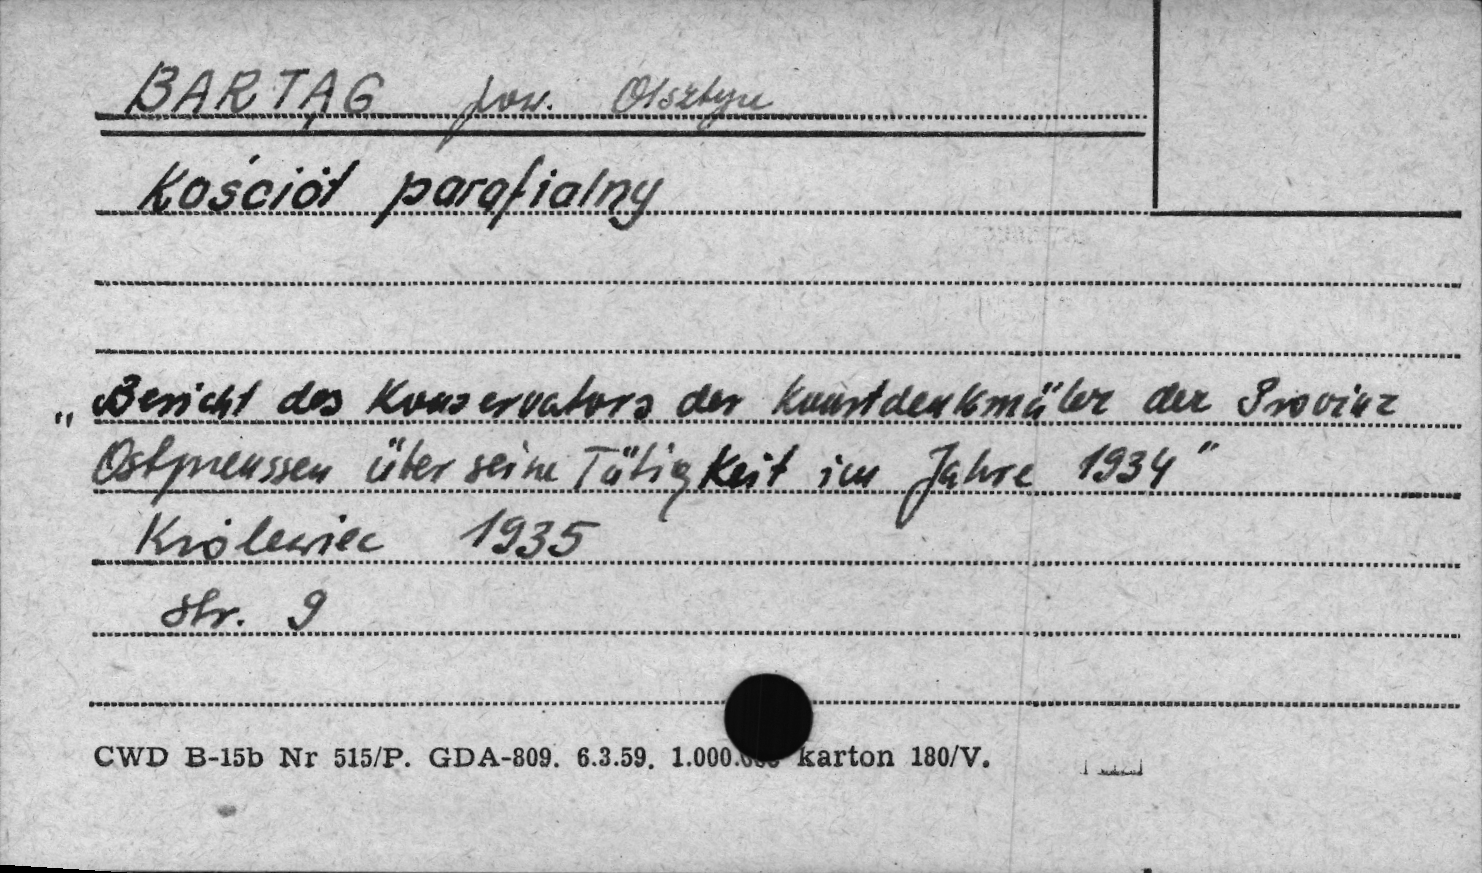 BARTĄG pow. Olsztyn
Kościół parafialny
„Bericht des Konservators der Kunstdenkmäler der Provinz
Ostpreussen über seine Tätigkeit im Jahre 1934"
Królewiec 1935
str. 9
CWD B-15b Nr 515/P. GDA-809. 6.3.59. 1.000.000 karton 180/V.